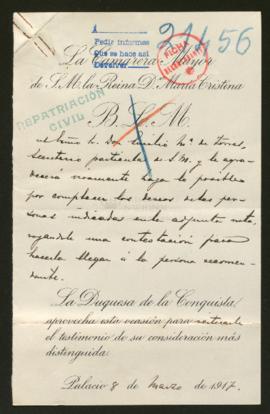 A
Pedir informes
Que se hace así
Devolver
21456
FICHA
La Camarera Mayor
de S. M. la Reina D.ª María Cristina
REPATRIACIÓN
CIVIL
B. S. M.
al Exmo. Sr. Don Emilio Mª de Torres,
Secretario particular de S. M. y le agra-
decerá vivamente haga lo posible
por complacer los deseos de las per-
sonas indicadas en la adjunta nota,
rogándole una contestación para
hacerla llegar á la persona recomen-
dante.
La Duquesa de la Conquista,
aprovecha esta ocasión para reiterarle
el testimonio de su consideración más
distinguida.
Palacio 8 de Marzo de 1917.